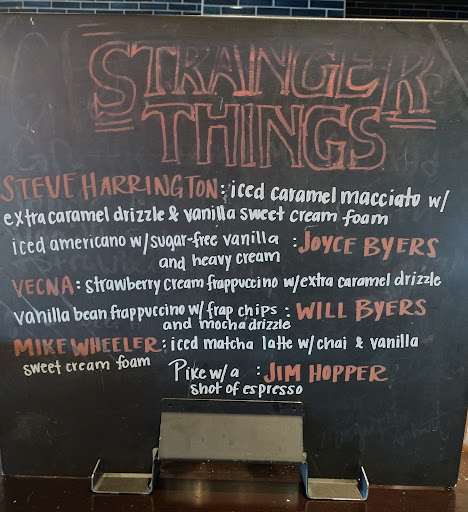 STRANGER
THINGS
STEVE HARRINGTON: iced caramel macciato w/
extra caramel drizzle & vanilla sweet cream foam
iced americano w/sugar-free vanilla : JOYCE BYERS
and heavy cream
VECNA: strawberry cream frappuccino w/extra caramel drizzle
vanilla bean frappuccino w/ frap chips : WILL BYERS
and mocha drizzle
MIKE WHEELER: iced matcha latte w/chai & vanilla
sweet cream foam
Pike w/a : JIM HOPPER
shot of espresso